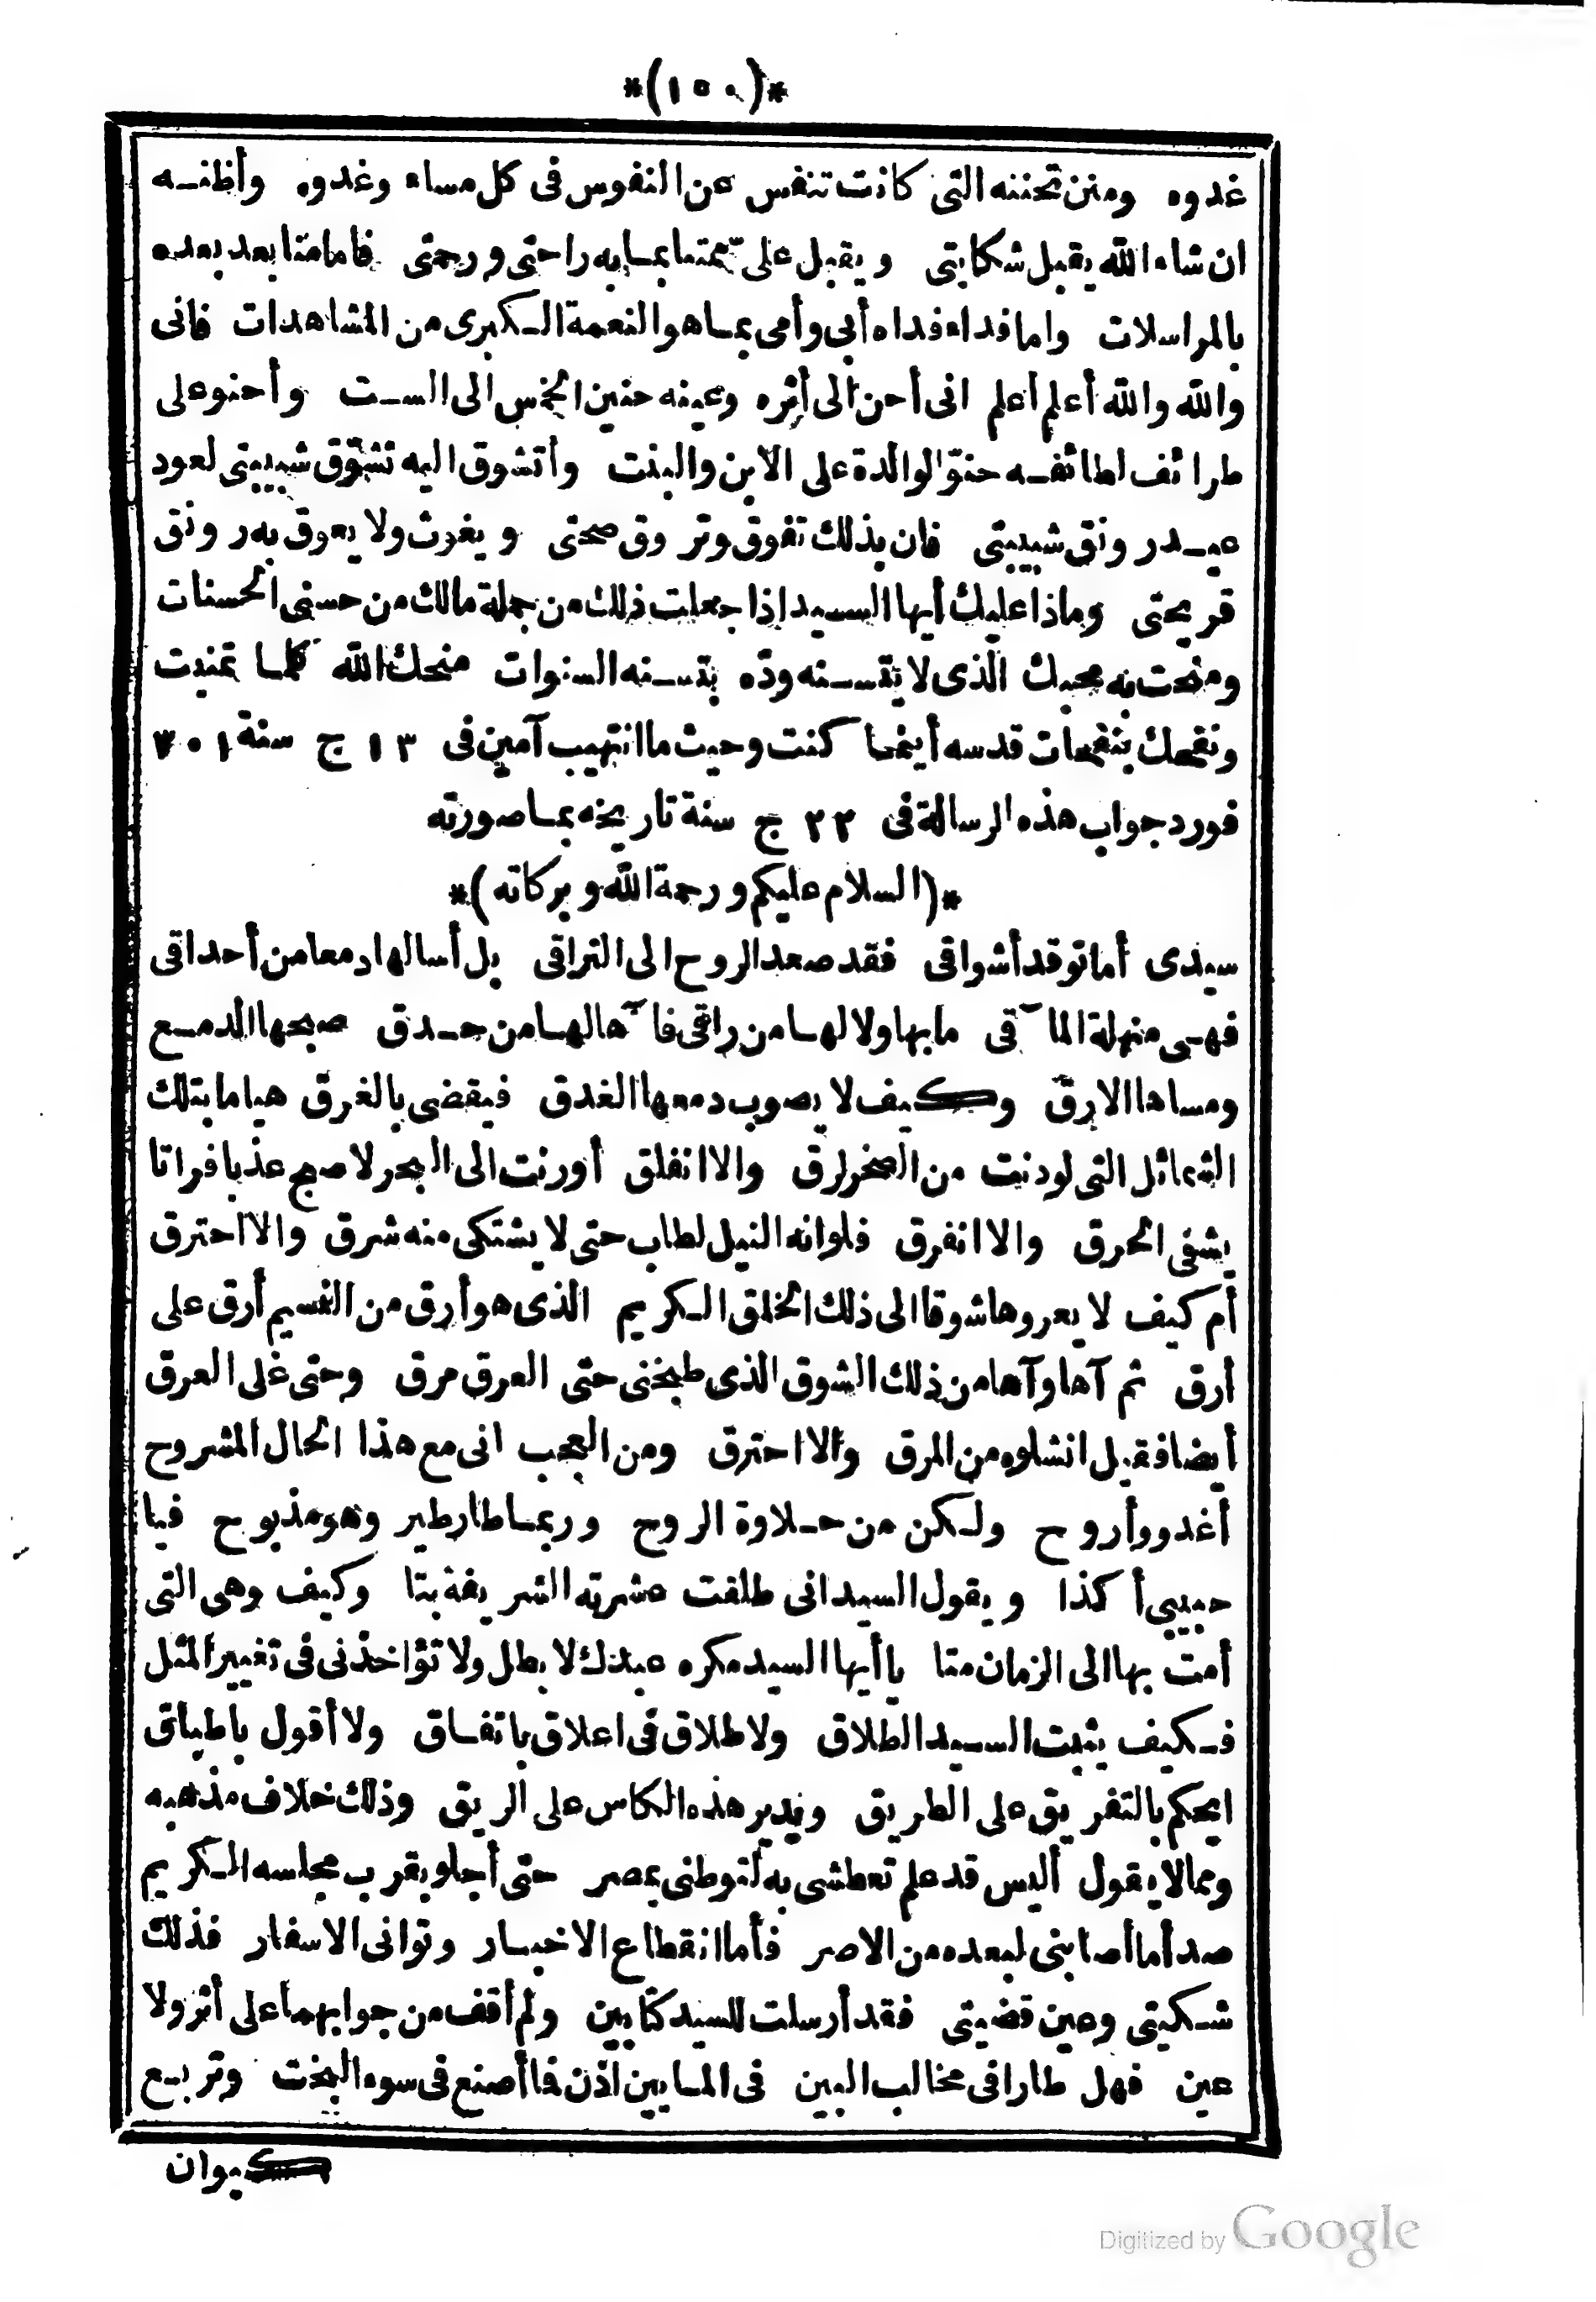 *(١٥٠)*
غدوه ومنن تحننه التى كانت تنفس عن النفوس فى كل مساء وغدوه وأظنه
ان شاء الله يقبل شكايتى ويقبل على متمتعا بما به راحتى ورحمتى فاما منا بعد بعده
بالمراسلات واما فداء فداه أبى وأمى بما هو النعمة الكبرى من المشاهدات فانى
والله والله أعلم أعلم انى أحن الى أثره وعينه حنين الخنس الى الست وأحنو على
طرائف لطائفه حنو الوالدة على الابن والبنت وأتشوق اليه تشوق شبيبتى لعود
عيد رونق شبيبتى فان بذلك تفوق وتروق صحتى ويغدق ولا يعوق به رونق
قريحتى وماذا عليك أيها السيد اذا جعلت ذلك من جملة مالك من حسنى الحسنات
ومنحت به محبك الذى لا يتسنه وده بتسنه السنوات منحك الله كلما تمنيت
ونفحك بنفحات قدسه أينما كنت وحيث ما انتهيت آمين فى ١٣ ج سنة ٣٠١
فورد جواب هذه الرسالة فى ٢٣ ج سنة تاريخه بما صورته
*(السلام عليكم ورحمة الله وبركاته)*
سيدى أما توقد أشواقى فقد صعد الروح الى التراقى بل أسالها دمعا من أحداقى
فهى منهلة المآقى ما بها ولا لها من راقى فآها لها من حدق صبحها الدمع
ومساها الارق وكيف لا يصوب دمعها الغدق فيقضى بالغرق هياما بتلك
الشمائل التى لو دنت من الصخر لرق والا انفلق أو رنت الى البحر لاصبح عذبا فراتا
يشفى الحرق والا انفرق فلو انه النيل لطاب حتى لا يشتكى منه شرق والا احترق
أم كيف لا يعروها شوقا الى ذلك الخلق الكريم الذى هو أرق من النسيم أرق على
أرق ثم آها وآها من ذلك الشوق الذى طبخنى حتى العرق مرق وحتى غلى العرق
أيضا فقيل انشلوه من المرق والا احترق ومن العجب انى مع هذا الحال المشروح
أغدو وأروح ولكن من حلاوة الروح وربما طار طير وهو مذبوح فيا
حبيبى أكذا ويقول السيد انى طلقت عشرته الشريفة بتا وكيف وهى التى
أمت بها الى الزمان متا يا أيها السيد مكره عبدك لا بطل ولا تؤاخذنى فى تغيير المثل
فكيف يثبت السيد الطلاق ولا طلاق فى اغلاق باتفاق ولا أقول باطباق
ايحكم بالتفريق على الطريق ويدير هذه الكاس على الريق وذلك خلاف مذهبه
ومما لا يقول أليس قد علم تعطشى به لتوطنى بمصر حتى أجلو بقرب مجلسه الكريم
صدأ ما أصابنى لبعده من الاصر فأما انقطاع الاخبار وتوانى الاسفار فذلك
شكيتى وعين قضيتى فقد أرسلت للسيد كتابين ولم أقف من جوابهما على أثر ولا
عين فهل طارا فى مخالب البين فى المابين اذن فما أصنع فى سوء البخت وتربيع
كيوان
Digitized by Google